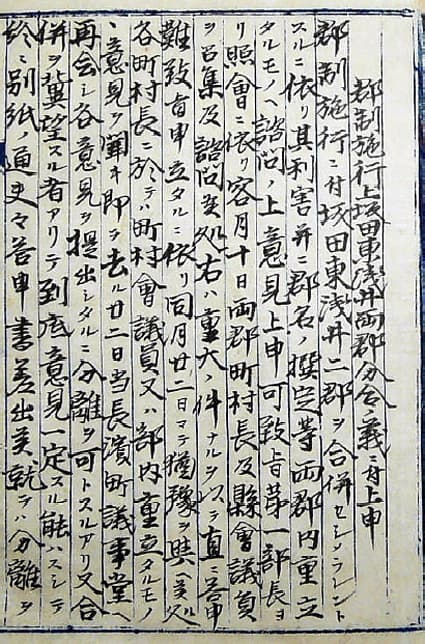 郡制施行上坂田東浅井両郡分合ノ義ニ付上申
郡制施行ニ付坂田東浅井二郡ヲ合併セシメラレント
スルニ依リ其利害并ニ郡名ノ撰定等両郡内重立
タルモノヘ諮問ノ上意見上申可致旨第一部長ヨ
リ照會ニ依リ客月十日両郡町村長及縣會議員
ヲ召集及諮問候処右ハ重大ノ件ナルヲ以テ直ニ答申
難致旨申立タルニ依リ同月廿二日マテ猶豫ヲ與ヘ候処
各町村長ニ於テハ町村會議員又ハ部内重立タルモノ
ノ意見ヲ聞キ即ヲ去ル廿二日当長濱町議事堂ヘ
再会シ各意見ヲ提出シタルニ分離ヲ可トスルアリ又合
併ヲ冀望スル者アリテ到底意見一定スル能ハスシテ
終ニ別紙ノ通更々答申書差出候就テハ分離ヲ